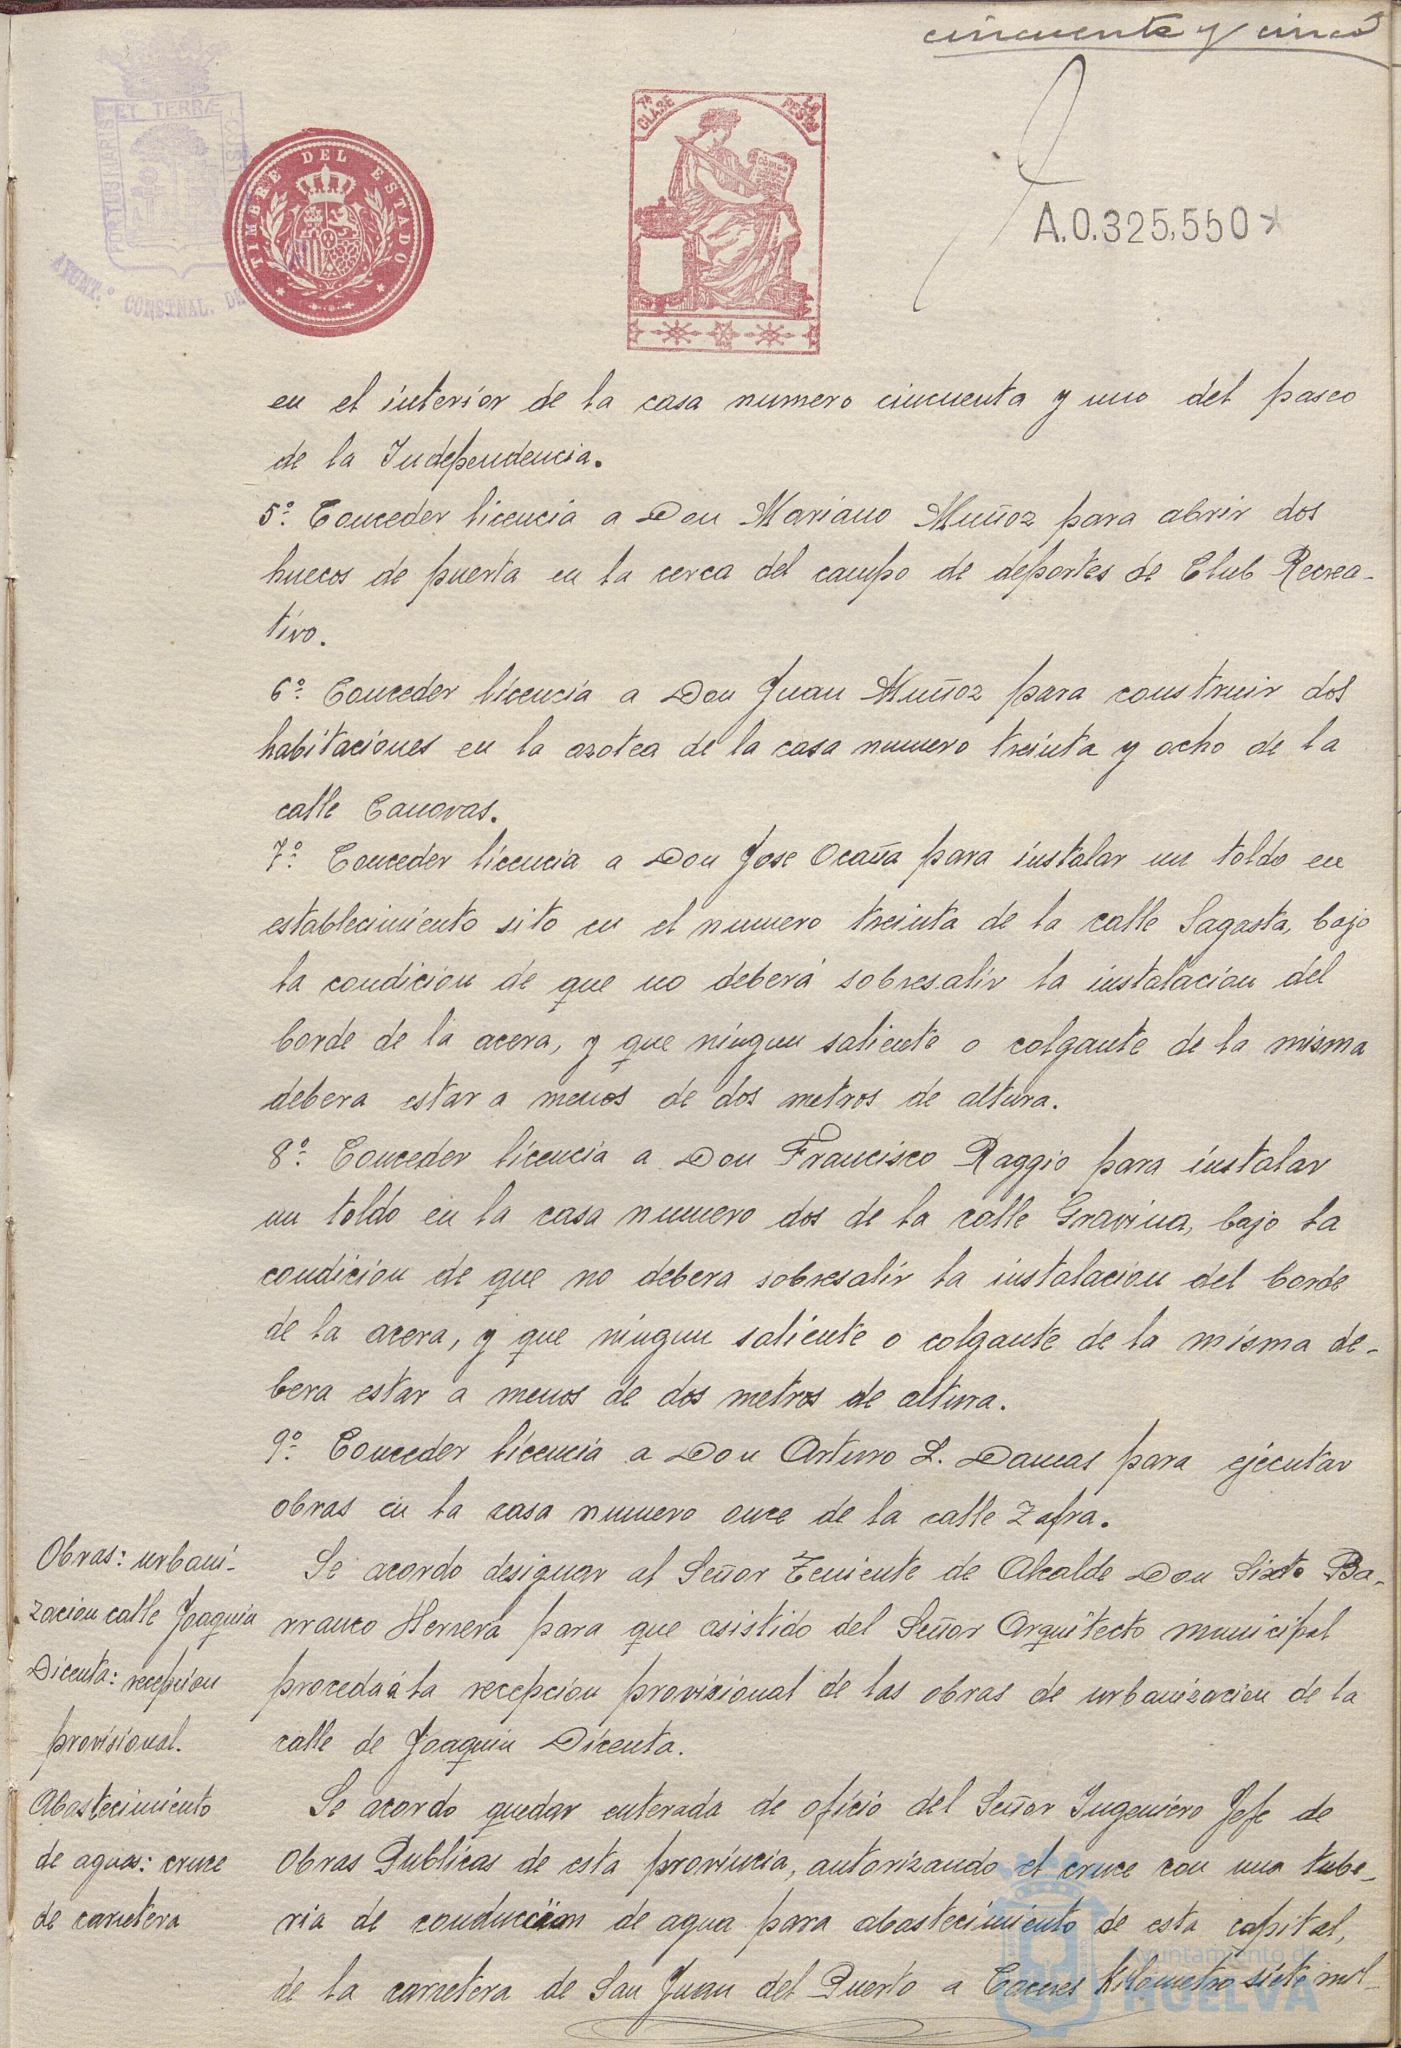 cincuenta y cinco
PORTUS MARIS ET TERRÆ CUS
AYUNT.º CONSTNAL. DE
TIMBRE DEL ESTADO
7ª CLASE
PESTAS
A.0.325,550
en el interior de la casa numero cincuenta y uno del paseo
de la Independencia.
5º. Conceder licencia a Don Mariano Muñoz para abrir dos
huecos de puerta en la cerca del campo de deportes de Club Recrea-
tivo.
6º. Conceder licencia a Don Juan Muñoz para construir dos
habitaciones en la azotea de la casa numero treinta y ocho de la
calle Canovas.
7º. Conceder licencia a Don Jose Ocaña para instalar un toldo en
establecimiento sito en el numero treinta de la calle Sagasta, bajo
la condicion de que no deberá sobresalir la instalacion del
borde de la acera, y que ningun saliente o colgante de la misma
debera estar a menos de dos metros de altura.
8º. Conceder licencia a Don Francisco Raggio para instalar
un toldo en la casa numero dos de la calle Gravina, bajo la
condicion de que no debera sobresalir la instalacion del borde
de la acera, y que ningun saliente o colgante de la misma de-
bera estar a menos de dos metros de altura.
9º. Conceder licencia a Don Arturo L. Damas para ejecutar
obras en la casa numero once de la calle Zafra.
Obras: urbani-
zacion calle Joaquin
Dicenta: recepcion
provisional.
Se acordo designar al Señor Teniente de Alcalde Don Sixto Ba-
rranco Herrera para que asistido del Señor Arquitecto municipal
proceda á la recepcion provisional de las obras de urbanizacion de la
calle de Joaquin Dicenta.
Abastecimiento
de aguas: cruce
de carretera
Se acordo quedar enterada de oficio del Señor Ingeniero Jefe de
Obras Publicas de esta provincia, autorizando el cruce con una tube-
ria de conduccion de agua para abastecimiento de esta capital,
de la carretera de San Juan del Puerto a Caceres kilometro siete mil-
Ayuntamiento de
HUELVA